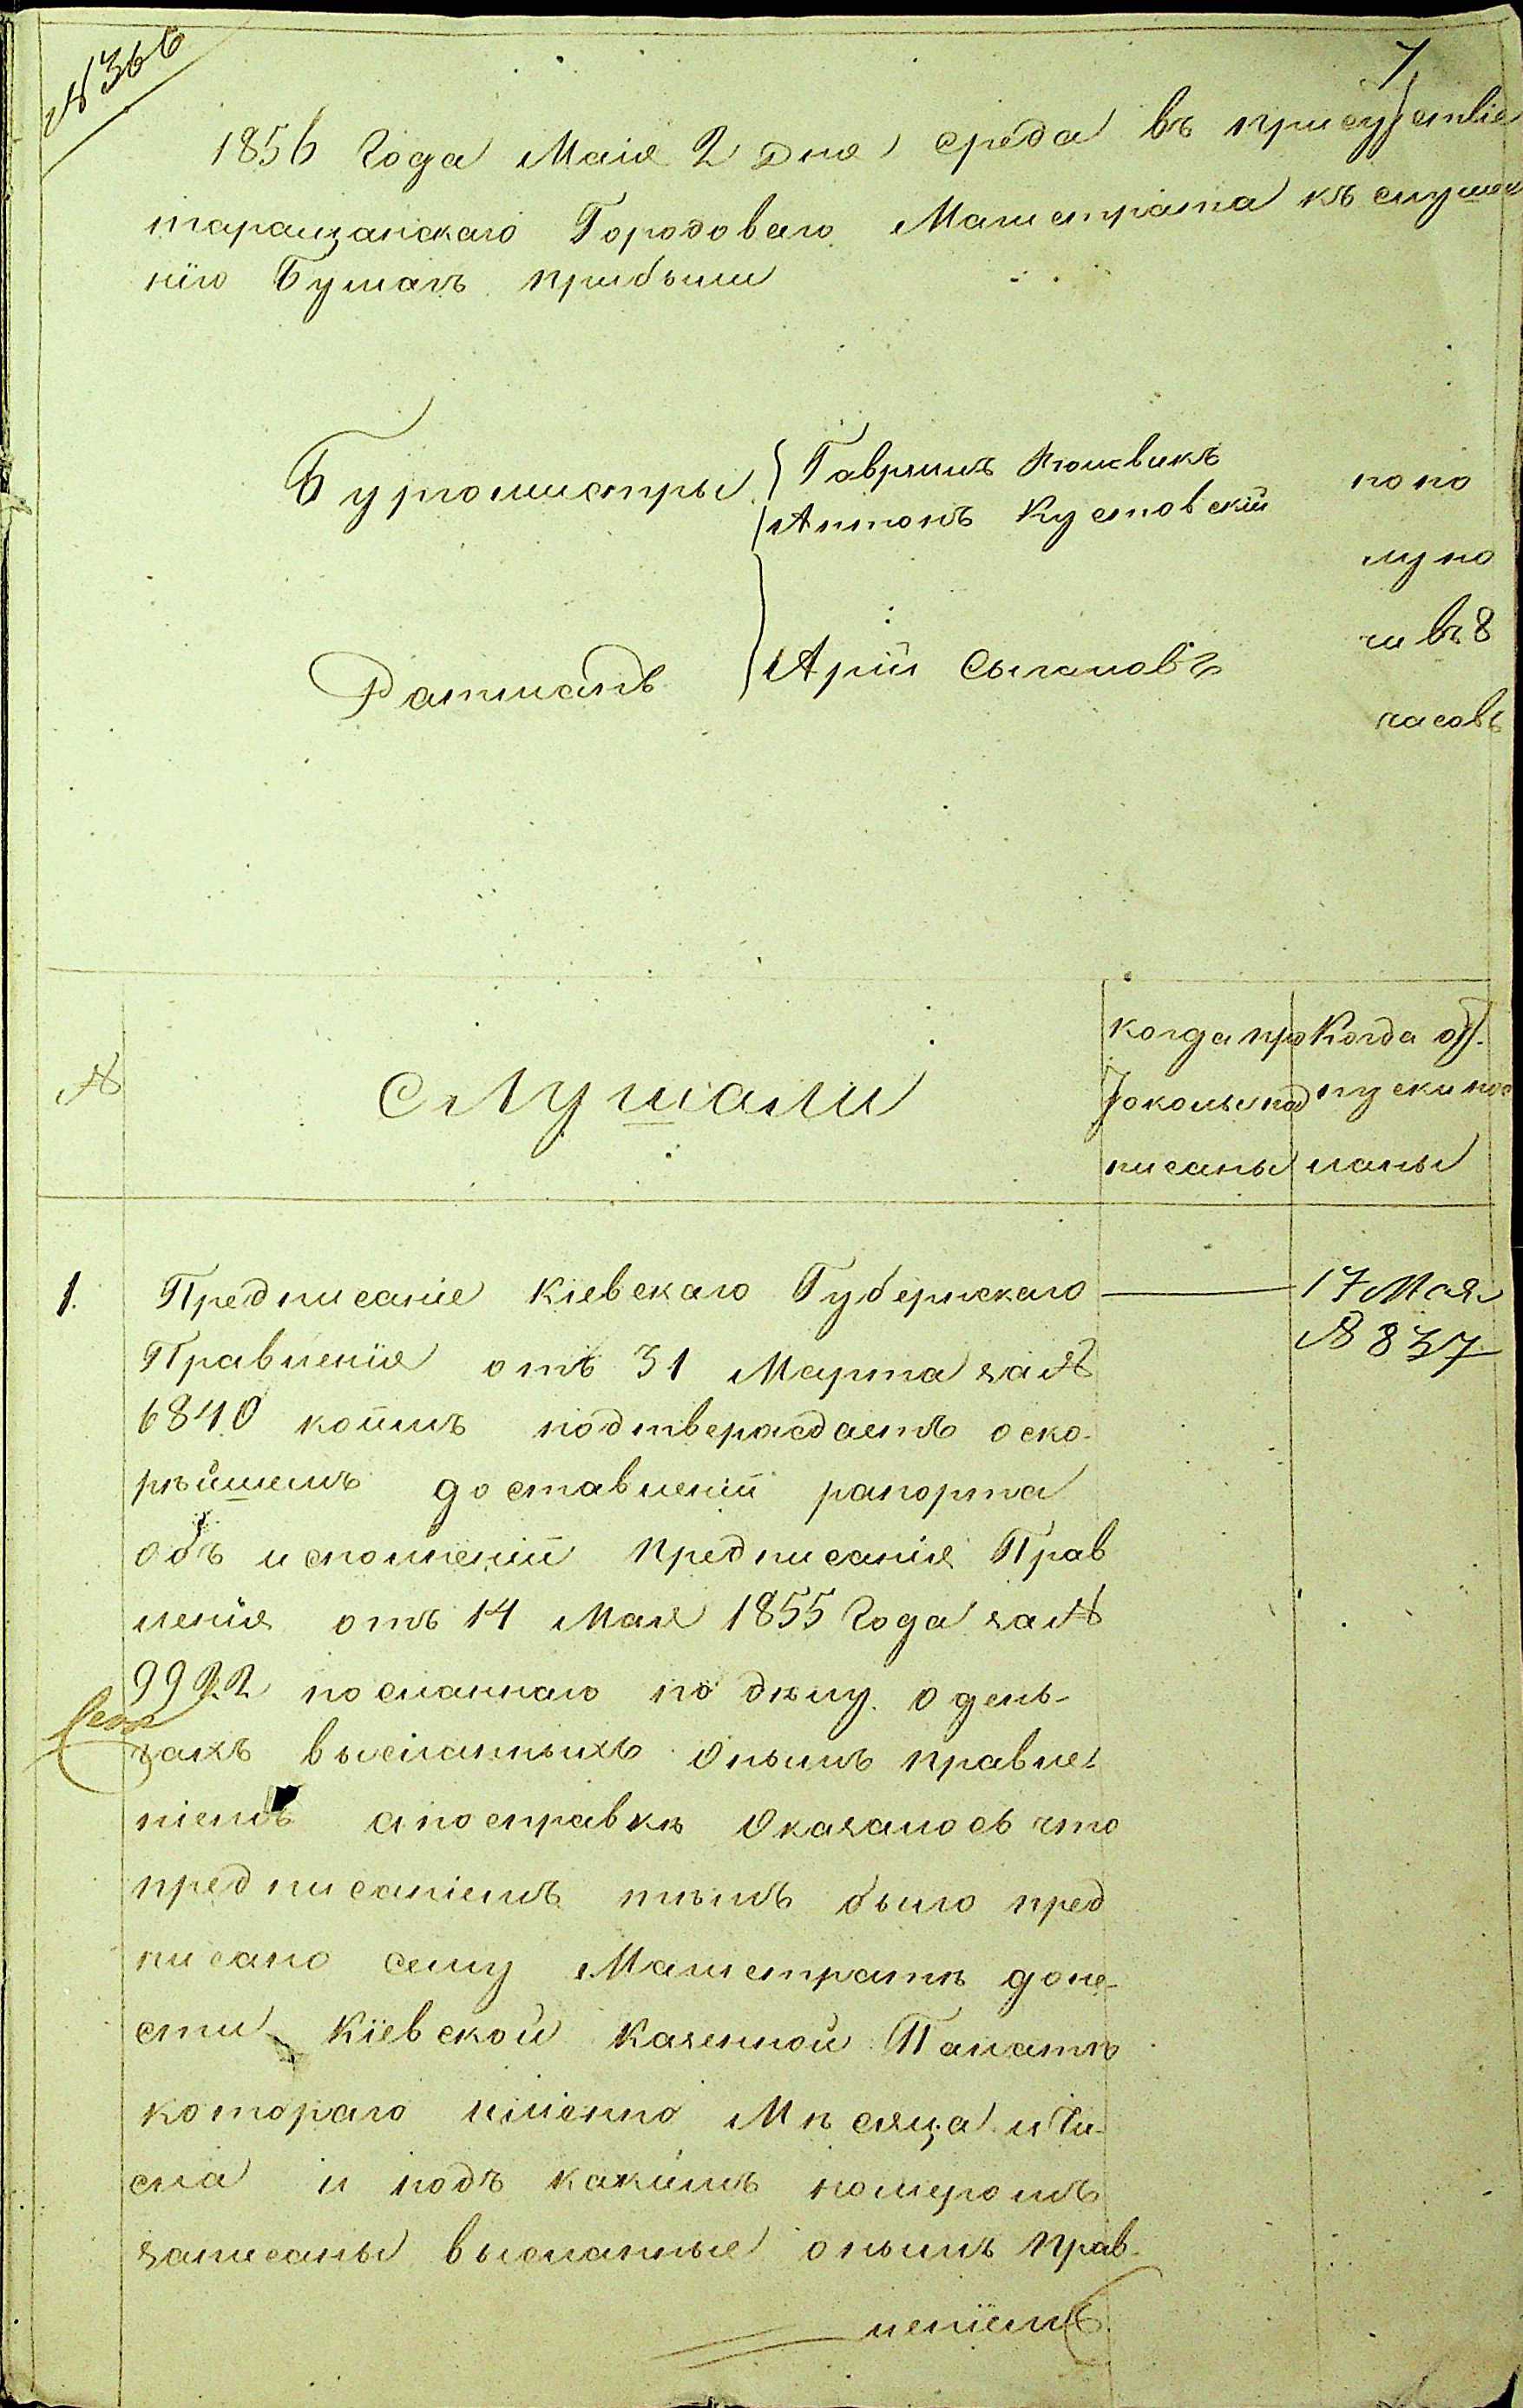 № 366
7
1856 Года Маія 2 дня среда въ присутствіе
таращанскаго Городоваго Магистрата къ слуша
нію Бумагъ прибыли
Бургомистры
Гаврилъ
Антонъ Кустовскій
Ратманъ
Арій Сыгаловъ
по по
лу но
чи въ 8
часовъ
№
слушали
когда про
токолы под
писаны
Когда от.
пуски пос
ланы
1. Предписаніе Кіевскаго Губернскаго
Правленія отъ 31 Марта за №
6840 коимъ подтверждаетъ о ско-
рѣйшемъ доставленіи рапорта
объ исполненіи предписанія Прав
ленія отъ 14 Мая 1855 Года за №
9922 посланнаго по дѣлу о день-
гахъ высланныхъ онымъ правле
ніемъ а по справкѣ Оказалось что
предписаніемъ тѣмъ было пред
писано сему Магистратѣ доне-
сти Кіевской Казенной Палатѣ
котораго именно Мѣсяца и Чи-
сла и подъ какимъ номеромъ
записаны высланные онымъ Прав-
леніемъ
17 Мая
№ 837